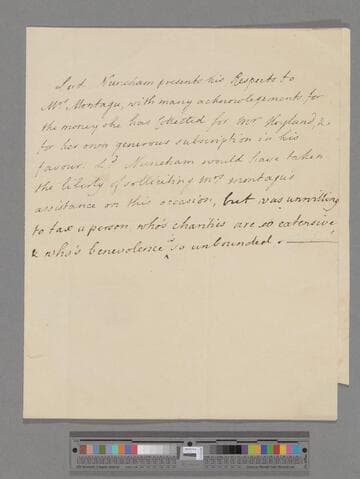 Lord Nuneham presents his Respects to
Mrs Montagu, with many acknowlegements for
the money she has collected for Mr Heyland, &
for her own generous subscription in his
favour. Ld Nuneham would have taken
the liberty of solliciting Mrs Montagu's
assistance on this occasion, but was unwilling
to tax a person who's charities are so extensive,
& who's benevolence is so unbounded.